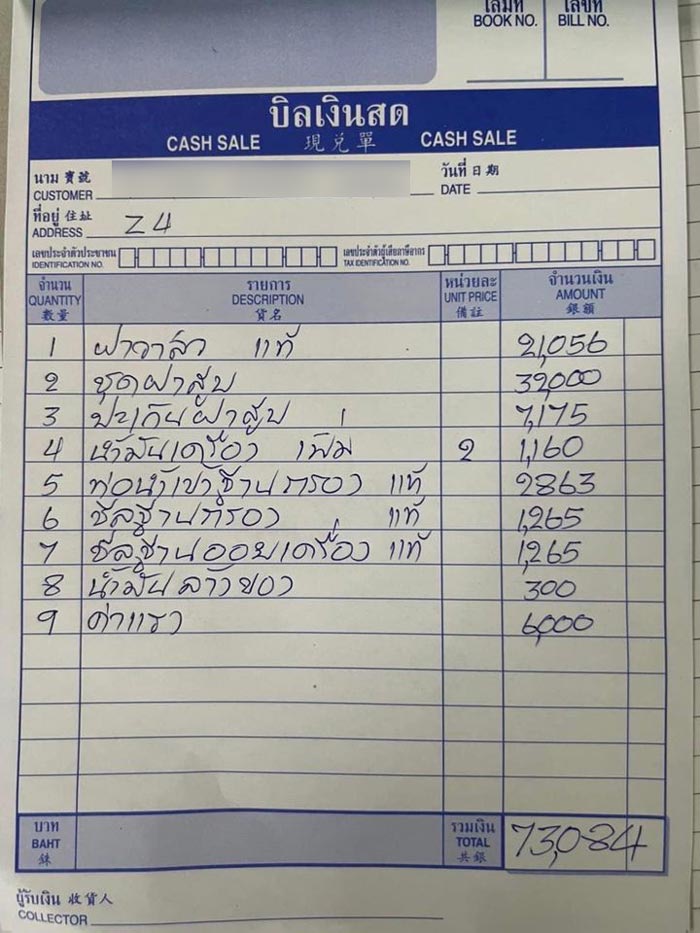 เล่มที่ เลขที่
BOOK NO. BILL NO.
บิลเงินสด
CASH SALE 現兌單 CASH SALE
นาม 寶號 วันที่ 日期
CUSTOMER DATE
ที่อยู่ 住址
ADDRESS Z4
เลขประจำตัวประชาชน เลขประจำตัวผู้เสียภาษีอากร
IDENTIFICATION NO. TAX IDENTIFICATION NO.
จำนวน รายการ หน่วยละ จำนวนเงิน
QUANTITY DESCRIPTION UNIT PRICE AMOUNT
數量 貨名 備註 銀額
1 ฝาวาล์ว แท้ 21,056
2 ชุดฝาสูบ 32,000
3 ปะเก็นฝาสูบ 1 7,175
4 น้ำมันเครื่อง เพิ่ม 2 1,160
5 ท่อน้ำเข้าฐานกรอง แท้ 2863
6 ซีลฐานกรอง แท้ 1,265
7 ซีลฐานออยเครื่อง แท้ 1,265
8 น้ำมันล้างของ 300
9 ค่าแรง 6,000
บาท รวมเงิน
BAHT TOTAL 73,084
銖 共銀
ผู้รับเงิน 收貨人
COLLECTOR